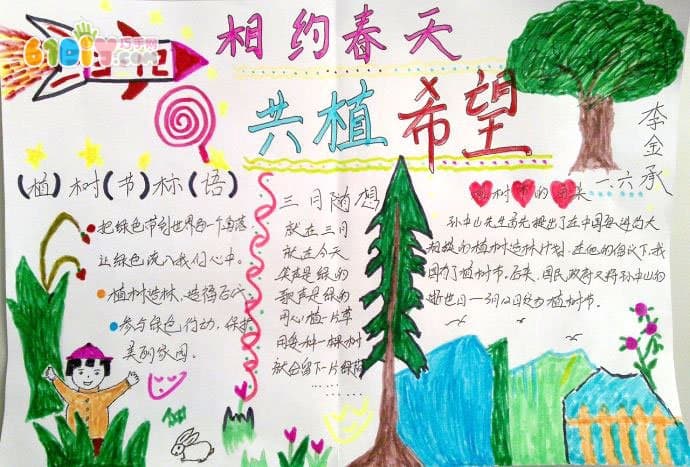 61diy.com
巧手网
相约春天
共植希望
李金承
一.六
(植)树(节)标(语)
把绿色带到世界每一个角落
让绿色流入我们心中。
植树造林、造福后代
参与绿色行动,保护
美丽家园。
三月随想
就在三月
就在今天
笑声是绿的
歌声是绿的
用心植一片草
用爱种一棵树
就会留下一片绿荫
植树节的由来
孙中山先生首先提出了在中国
植树造林计划,在他的倡议下,我
国有了植树节。后来,国民政府又将孙中山的
逝世日—3月12日定为植树节。